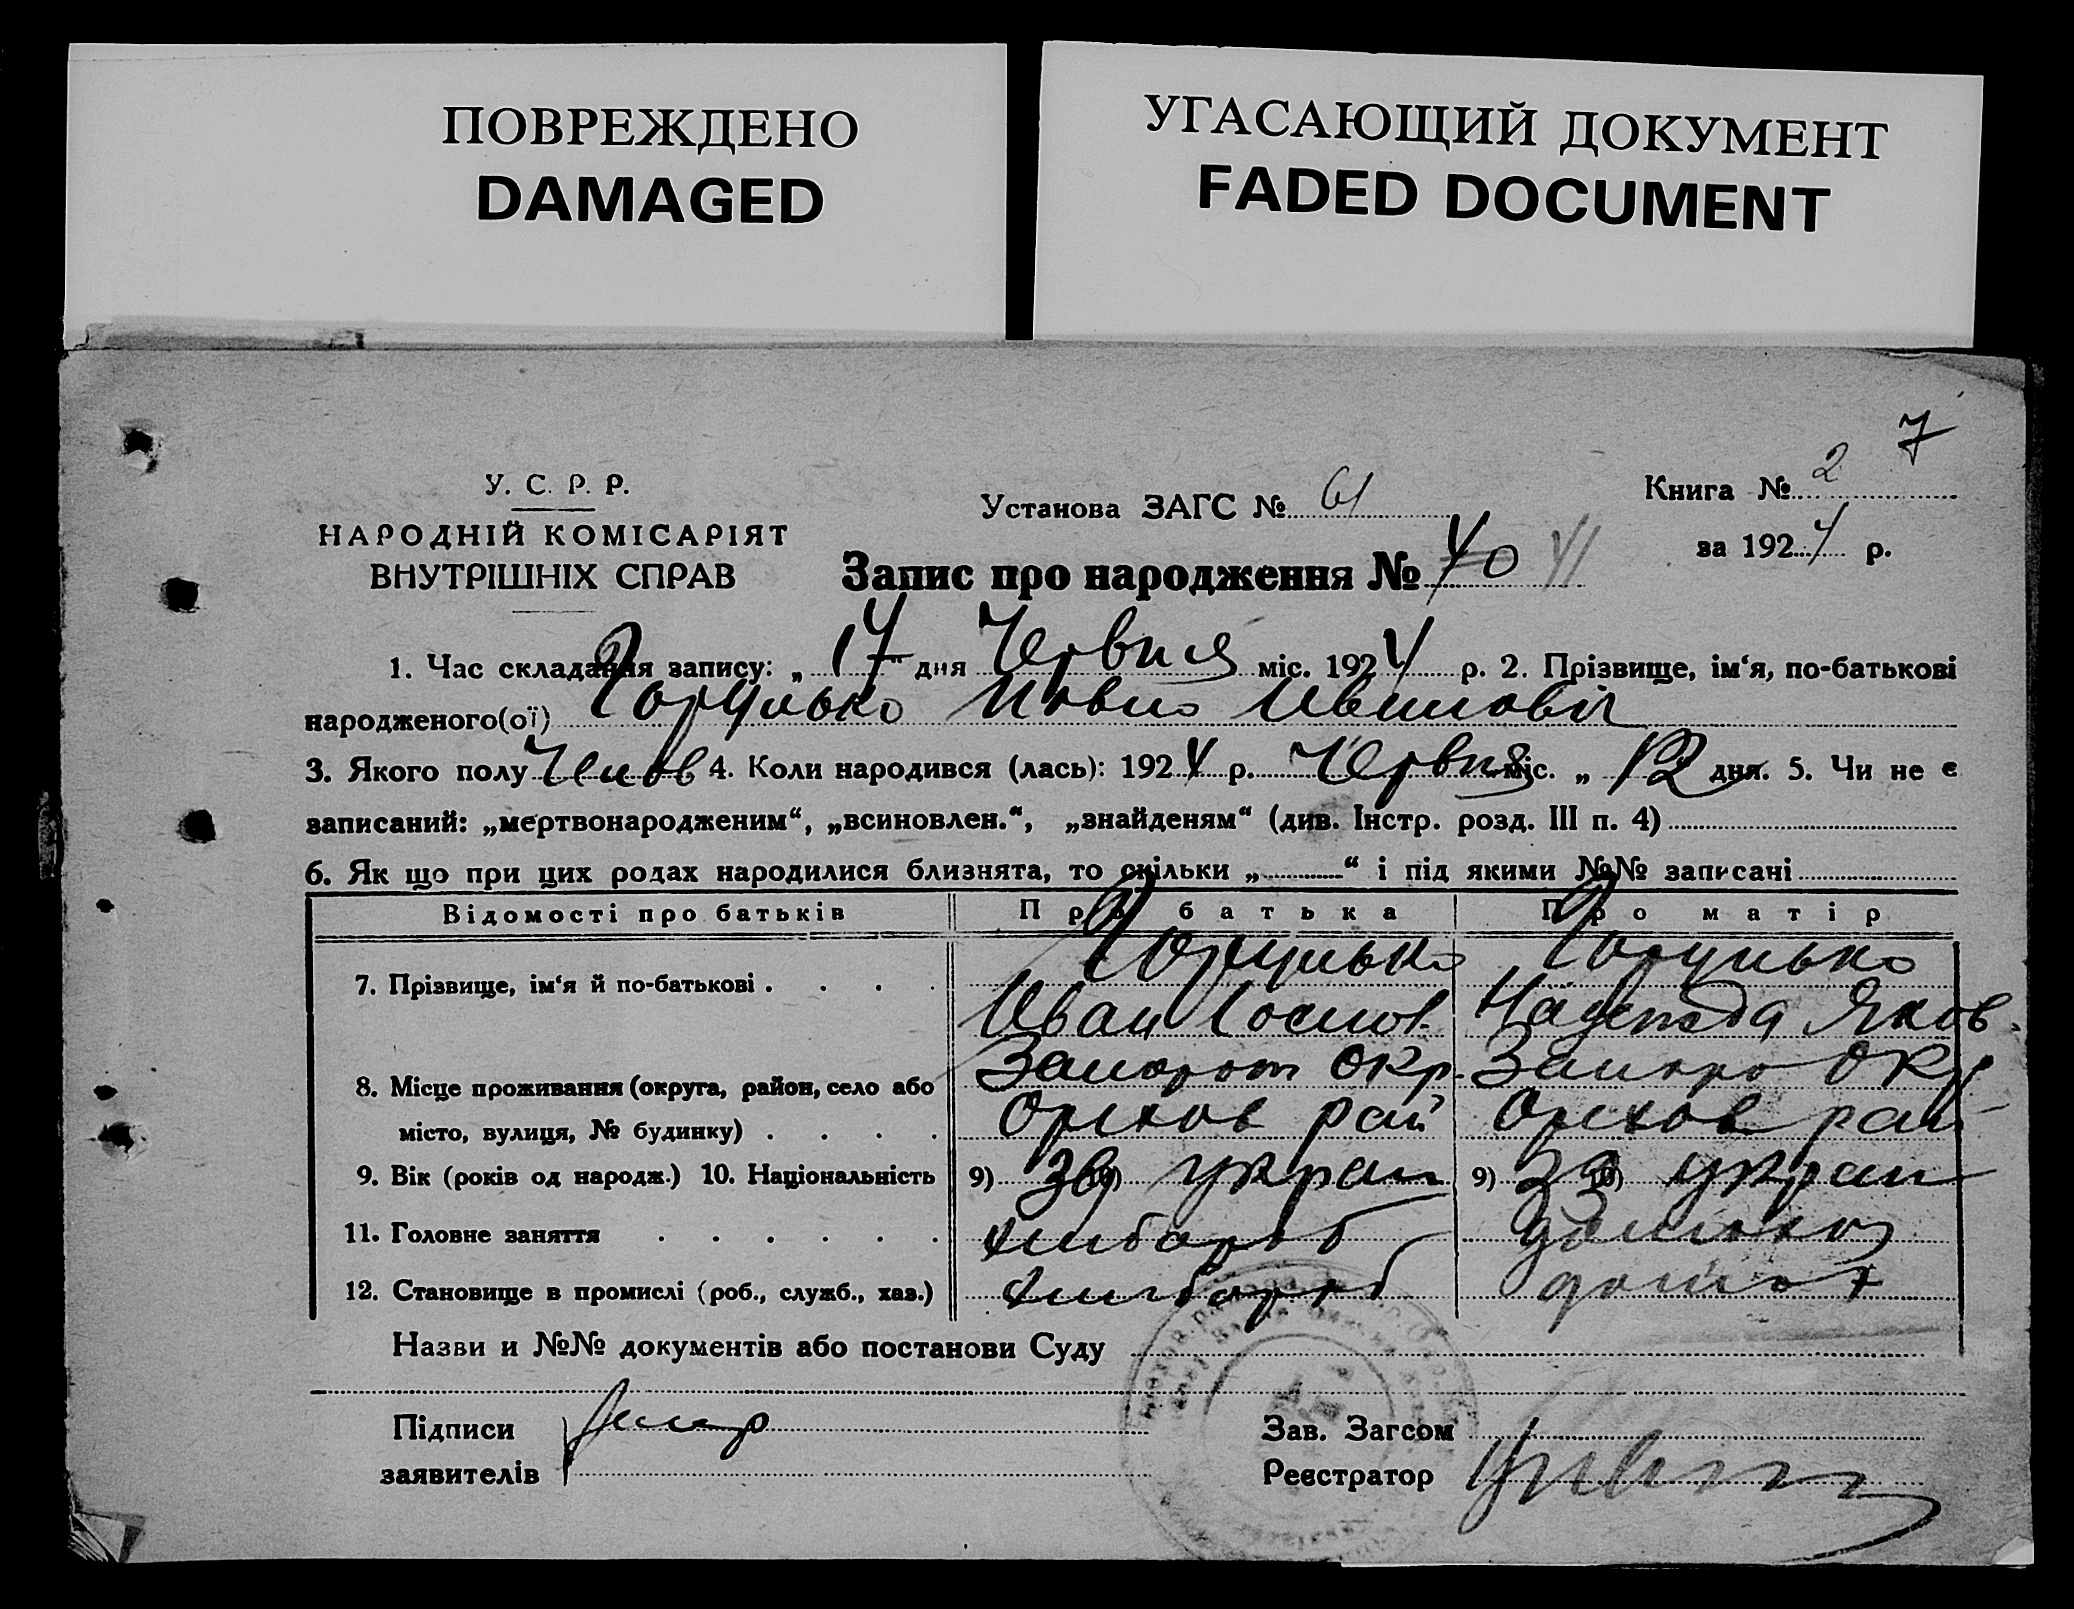 ПОВРЕЖДЕНО
DAMAGED
УГАСАЮЩИЙ ДОКУМЕНТ
FADED DOCUMENT
7
У. С. Р. Р.
НАРОДНІЙ КОМІСАРІЯТ
ВНУТРІШНІХ СПРАВ
Установа ЗАГС № 61
Книга № 2
за 1924 р.
Запис про народження № 40 41
1. Час складання запису: „ 17 " дня Червня міс. 1924 р. 2. Прізвище, ім‘я, по-батькові
народженого(ої) Горулько Иванович
3. Якого полу 4. Коли народився (лась): 1924 р. Червня міс. „ 12 дня. 5. Чи не є
записаний: „мертвонародженим“, „всиновлен.“, „знайденям“ (див. Інстр. розд. III п. 4)
6. Як що при цих родах народилися близнята, то скільки „ “ і під якими №№ записані
Відомості про батьків Про батька Про матір
7. Прізвище, ім‘я й по-батькові . . . . Горулько Горулько
Иван Надежда Яков.
8. Місце проживання (округа, район, село або Запорож Окр. Запоро Окр
місто, вулиця, № будинку) . . . . Орехов рай Орехов рай
9. Вік (років од народж.) 10. Національність 9) 10) украи 9) 10) украи
11. Головне заняття . . . . . . хлібороб
12. Становище в промислі (роб., служб., хаз.) хлібороб
Назви и №№ документів або постанови Суду
Підписи
заявителів
Зав. Загсом
Реєстратор